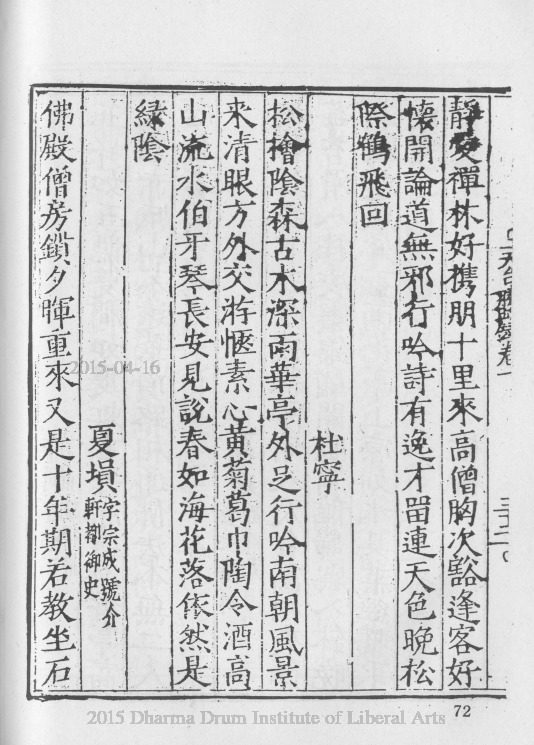 靜愛禪林好携朋十里來高僧胸次豁逢客好
懷開論道無邪行吟詩有逸才畱連天色晚松
際鶴飛回
杜寧
松檜陰森古木深雨華亭外足行吟南朝風景
来清眼方外交游愜素心黃菊葛巾陶令酒高
山流水伯牙琴長安見說春如海花落依然是
緑陰
夏塤字宗成號介
軒都御史
佛殿僧房鎖夕暉重來又是十年期若教坐石
2015-04-16
72
2015 Dharma Drum Institute of Liberal Arts